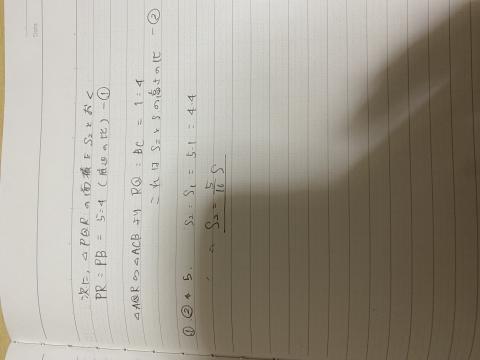 次に、△PQRの面積をS₂とおく
PR : PB = 5:4 (底辺の比) -①
△AQR∽△ACBより RQ : BC = 1 : 4
これはS₂とSの高さの比 -②
①②より
S₂ : S₁ = 5·1 : 4·4
∴ S₂ = 5/16 S
Date